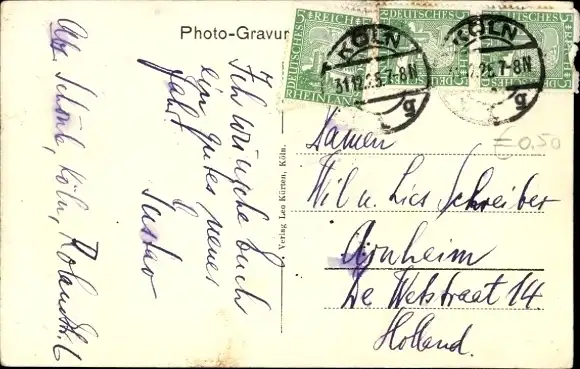 Photo-Gravur
Abs. Schönle, Köln, Rolandstr. 6
Ich wünsche Euch
ein gutes neues
Jahr!
Gustav
Verlag Leo Kürten, Köln.
DEUTSCHES
5 REICH 5
RHEINLAND
DEUTSCHES 5
DEUTSCHES 5
KÖLN
31.12.25.7-8N
g
KÖLN
25.7-8N
g
€ 0,50
Damen
Wil u. Lies Schreiber
Arnheim
De Wetstraat 14.
Holland.